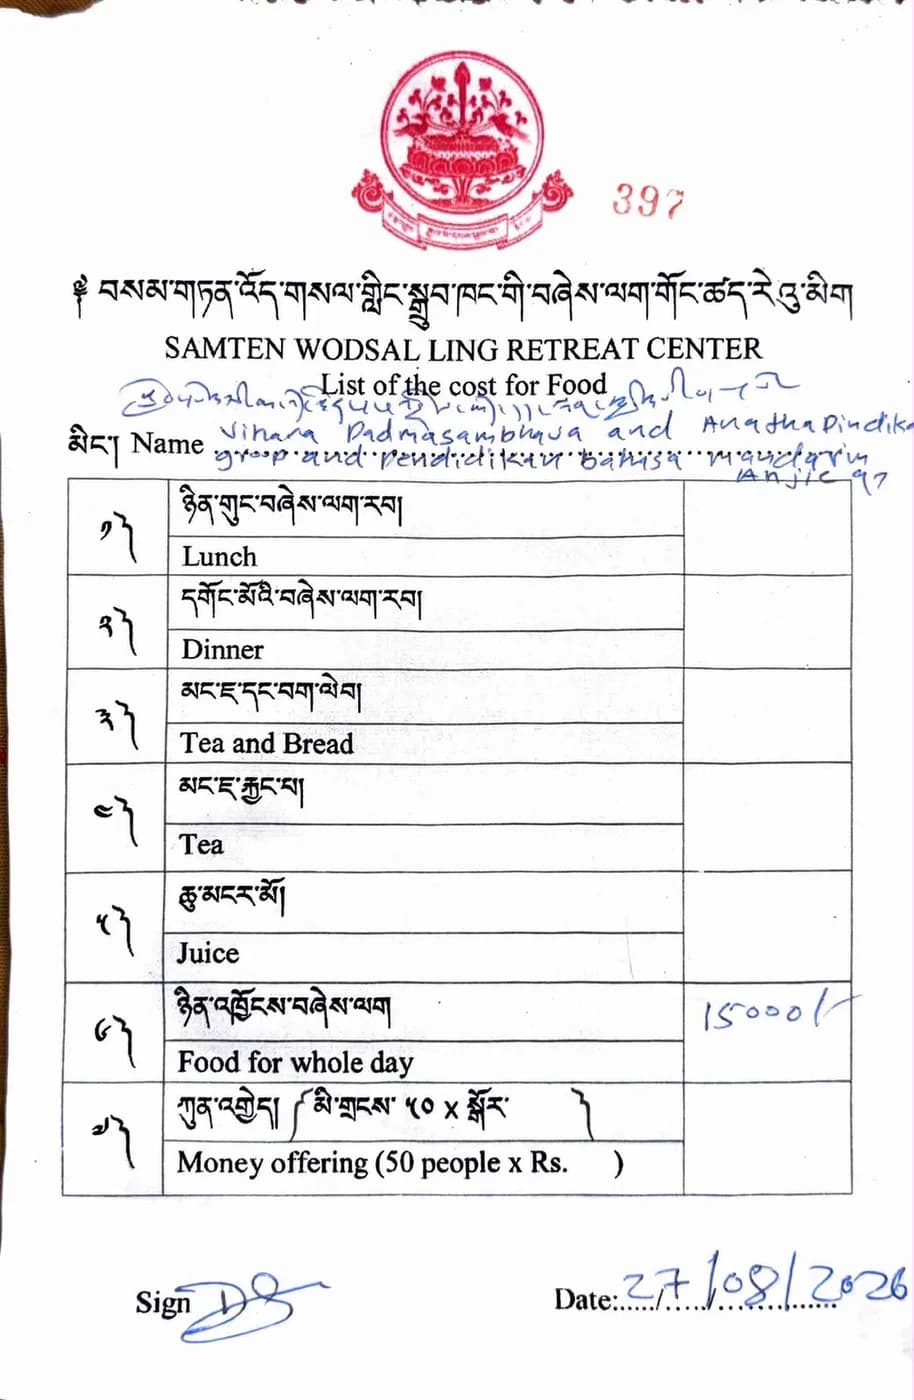 397
༄༅ བསམ་གཏན་འོད་གསལ་གླིང་སྒྲུབ་ཁང་གི་བཞེས་ལག་གོང་ཚད་རེའུ་མིག
SAMTEN WODSAL LING RETREAT CENTER
List of the cost for Food
མིང་། Name Vihara Padmasambhava and Anathapindika
group and pendidikan bahasa mandarin
Anjie 97
༡༽ ཉིན་གུང་བཞེས་ལག་རབ།
Lunch
༢༽ དགོང་མོའི་བཞེས་ལག་རབ།
Dinner
༣༽ མང་ཇ་དང་བག་ལེབ།
Tea and Bread
༤༽ མང་ཇ་རྐྱང་པ།
Tea
༥༽ ཆུ་མངར་མོ།
Juice
༦༽ ཉིན་འཁྱོངས་བཞེས་ལག 15000/-
Food for whole day
༧༽ ཀུན་འགྱེད། ༼མི་གྲངས་ ༥༠ x སྒོར་ ༽
Money offering (50 people x Rs. )
Sign
Date:27/08/2026